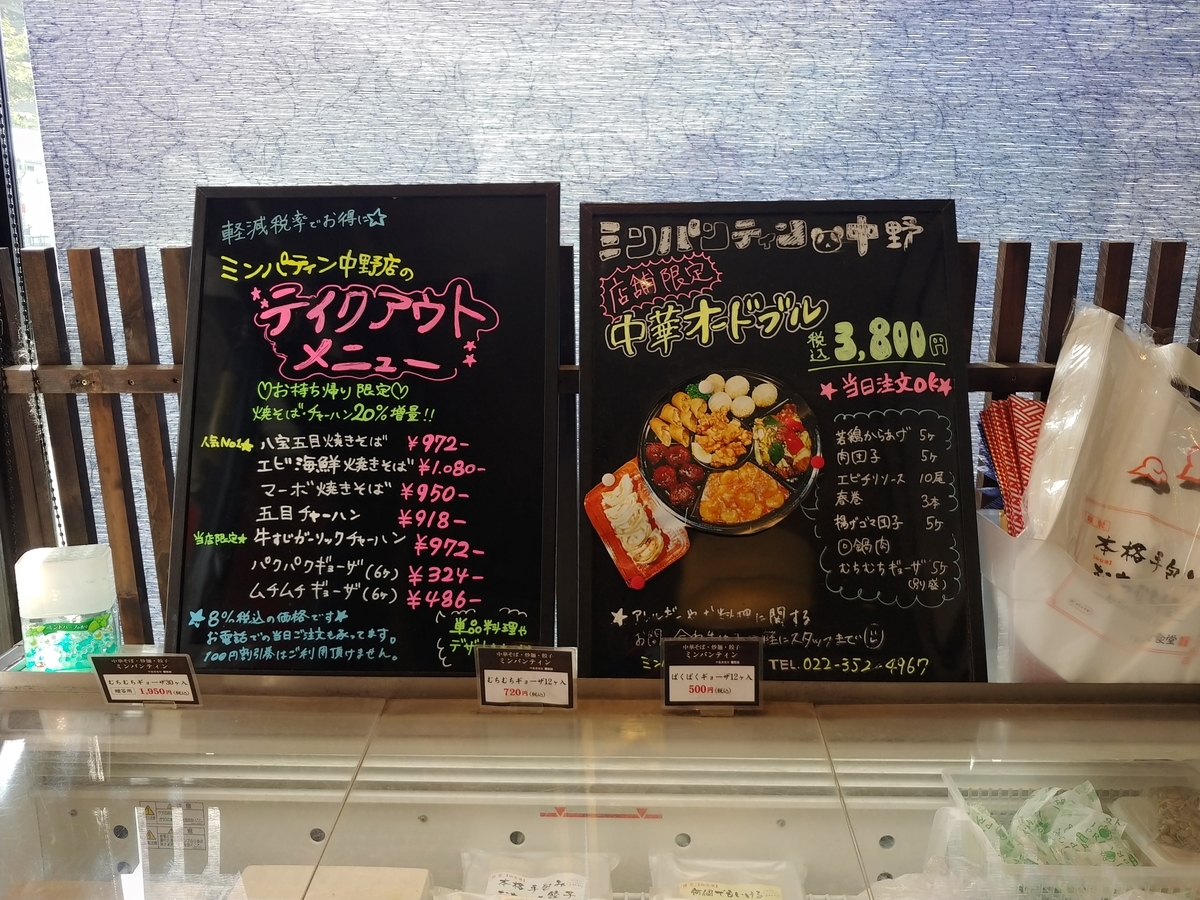 軽減税率でお得に☆
ミンパンティン中野店の
テイクアウト
メニュー
♡お持ち帰り限定♡
焼そば・チャーハン20%増量!!
人気No1★ 八宝五目焼きそば ¥972-
エビ海鮮焼きそば ¥1.080-
マーボ焼きそば ¥950-
五目チャーハン ¥918-
当店限定★ 牛すじガーリックチャーハン ¥972-
パクパクギョーザ(6ヶ) ¥324-
ムチムチギョーザ(6ヶ) ¥486-
★8%税込の価格です★
お電話での当日ご注文も承ってます。
100円割引券はご利用頂けません。
単品料理や
デザ
ミンパンティン中野
店舗限定
中華オードブル
税込 3,800円
★当日注文OK★
若鶏からあげ 5ヶ
肉団子 5ヶ
エビチリソース 10尾
春巻 3本
揚げゴマ団子 5ヶ
回鍋肉
むちむちギョーザ 5ヶ
(別盛)
に関する
スタッフまで
TEL.022-352-4967
中華そば・炒麺・餃子
ミンパンティン
むちむちギョーザ30ヶ入
贈答用 1,950円(税込)
中華そば・炒麺・餃子
ミンパンティン
むちむちギョーザ12ヶ入
720円(税込)
中華そば・炒麺・餃子
ミンパンティン
ぱくぱくギョーザ12ヶ入
500円(税込)
本格手包
本格手包み
何個でもいける